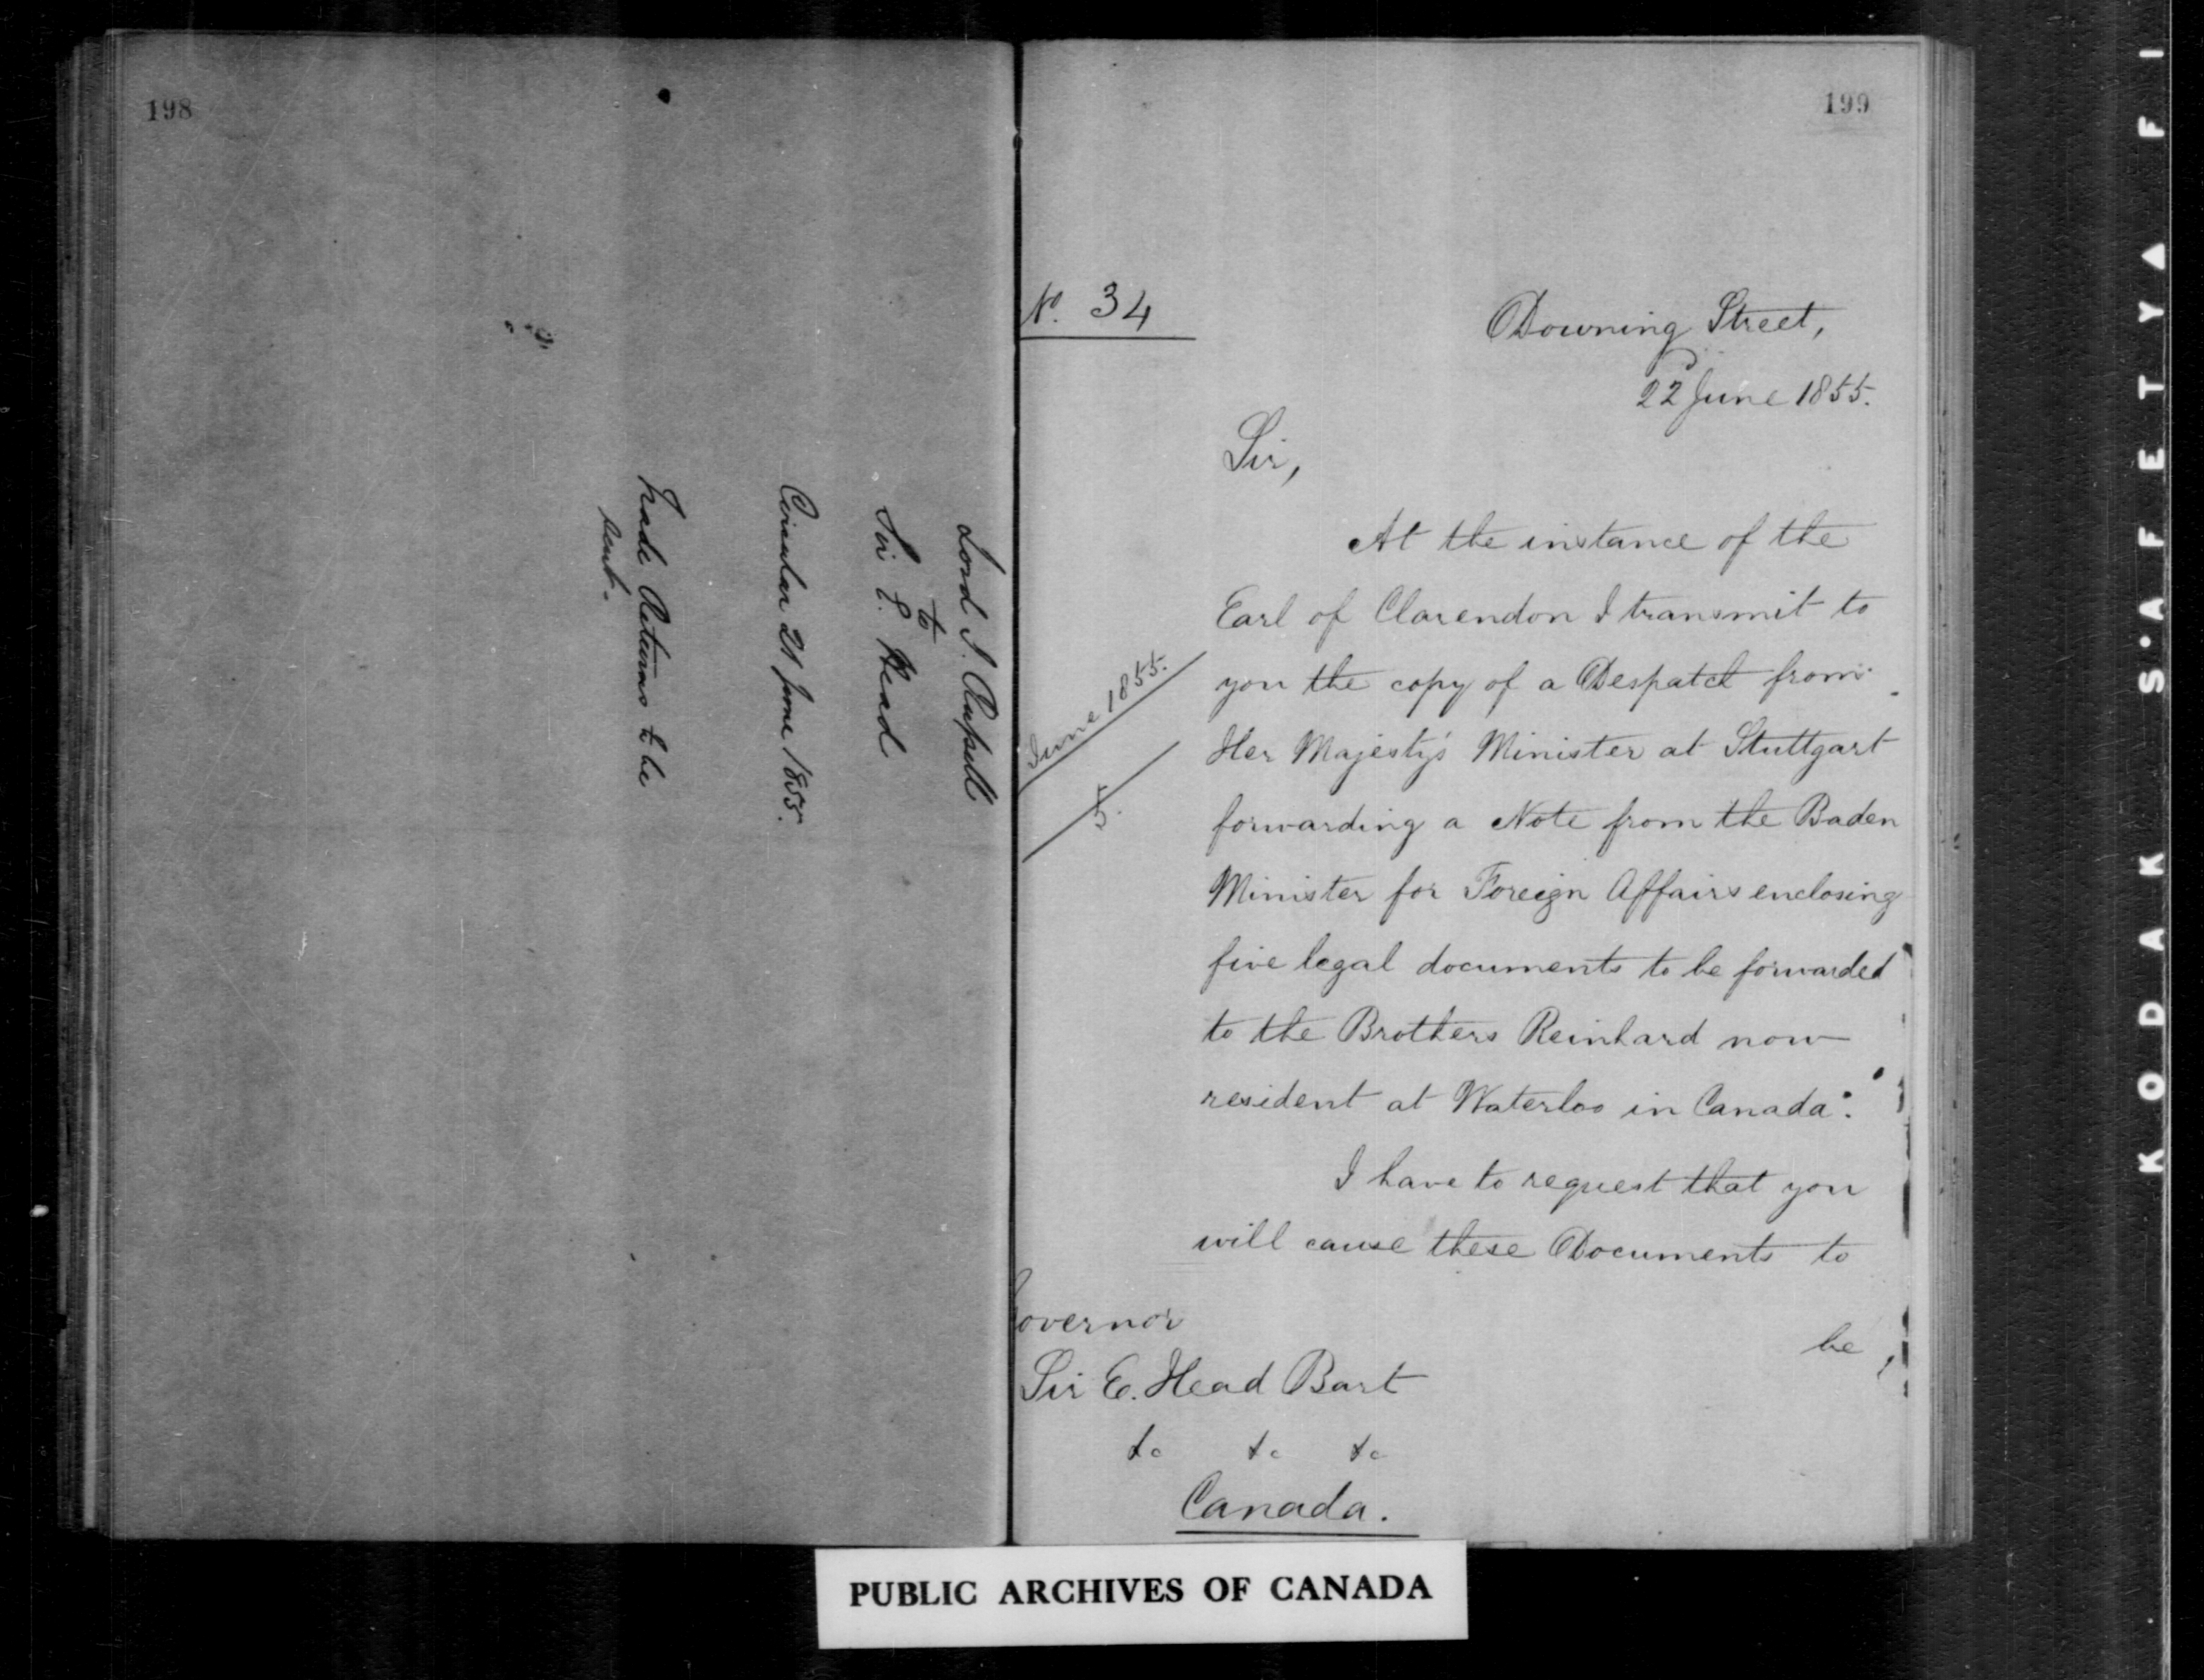 198
Lord J. Russell
to
Sir E. Head
Circular 21 June 1855.
Trade Returns to be
sent.
199
No. 34
Downing Street,
22 June 1855.
Sir,
At the instance of the
Earl of Clarendon I transmit to
you the copy of a Despatch from
Her Majesty's Minister at Stuttgart
forwarding a Note from the Baden
Minister for Foreign Affairs enclosing
five legal documents to be forwarded
to the Brothers Reinhard now
resident at Waterloo in Canada.
June 1855.
5.
I have to request that you
will cause these Documents to
be
Governor
Sir E. Head Bart
&c &c &c
Canada.
PUBLIC ARCHIVES OF CANADA
KODAK S'AFETY FI